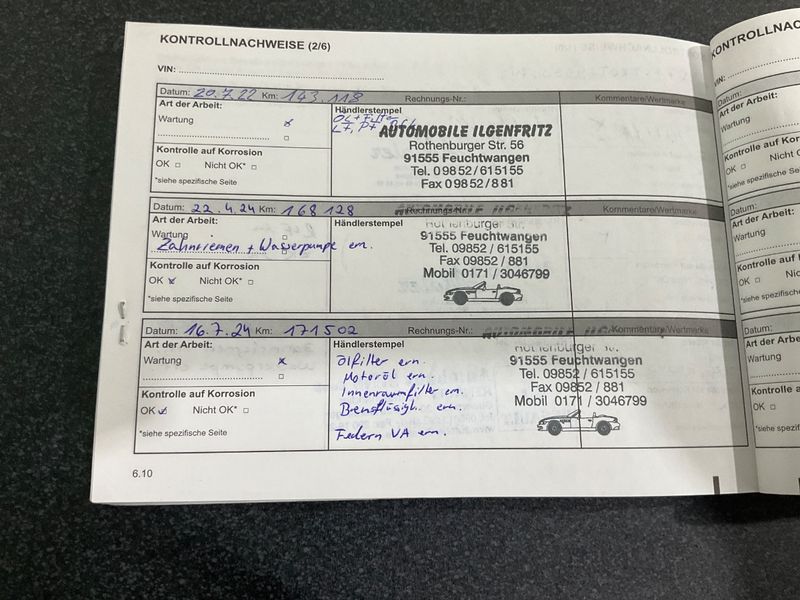 KONTROLLNACHWEISE (2/6)
VIN:
Datum: 20.7.22 Km: 143.118 Rechnungs-Nr.: Kommentare/Wertmarke
Art der Arbeit:
Wartung x
Kontrolle auf Korrosion
OK Nicht OK*
*siehe spezifische Seite
Händlerstempel
AUTOMOBILE ILGENFRITZ
Rothenburger Str. 56
91555 Feuchtwangen
Tel. 09852/615155
Fax 09852/881
Datum: 22.4.24 Km: 168128 Rechnungs-Nr.: Kommentare/Wertmarke
Art der Arbeit:
Wartung
Zahnriemen + Wasserpumpe ern.
Kontrolle auf Korrosion
OK Nicht OK*
*siehe spezifische Seite
Händlerstempel
91555 Feuchtwangen
Tel. 09852/615155
Fax 09852/881
Mobil 0171/3046799
Datum: 16.7.24 Km: 171502 Rechnungs-Nr.: Kommentare/Wertmarke
Art der Arbeit:
Wartung x
Kontrolle auf Korrosion
OK Nicht OK*
*siehe spezifische Seite
Händlerstempel
Ölfilter ern.
Motoröl ern.
Innenraumfilter ern.
Bremsflüssigk. ern.
Federn VA ern.
91555 Feuchtwangen
Tel. 09852 / 615155
Fax 09852 / 881
Mobil 0171 / 3046799
6.10
KONTROLLNAC
VIN:
Datum:
Art der Arbeit:
Wartung
Kontrolle auf Ko
OK Nicht
*siehe spezifische Seite
Datum:
Art der Arbeit:
Wartung
Kontrolle auf
OK Ni
*siehe spezifische
Datum:
Art der Arbeit:
Wartung
Kontrolle a
OK
*siehe spezifi